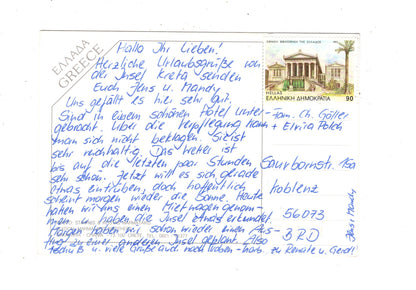 ΕΛΛΑΔΑ
GREECE
Hallo Ihr Lieben!
Herzliche Urlaubsgrüße von
der Insel Kreta senden
Euch Jens u. Mandy
Uns gefällt es hier sehr gut.
Sind in einem schönen Hotel unter-
gebracht. Über die Verpflegung kann
man sich nicht beklagen. Sie ist
sehr reichhaltig. Das Wetter ist
bis auf die letzten paar Stunden
sehr schön. Jetzt will es sich gerade
etwas eintrüben, doch hoffentlich
scheint morgen wieder die Sonne. Heute
haben wir uns einen Mietwagen genom-
men u. haben die Insel etwas erkundet.
Morgen haben wir schon wieder einen Aus-
flug zu einer anderen Insel geplant. Also
tschüß u. viele Grüße auch zu Renate u. Gerd!
Jens u. Mandy
HELLAS
ΕΛΛΗΝΙΚΗ ΔΗΜΟΚΡΑΤΙΑ 90
Fam. Ch.
+
Saurbornstr. 15a
Koblenz
56073
BRD